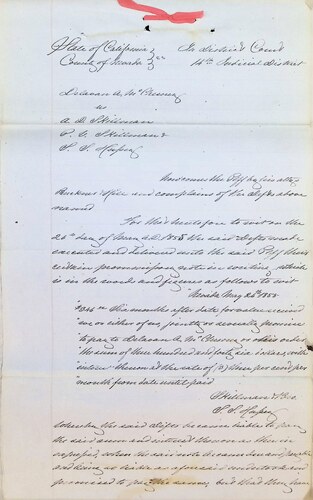 State of California } ss
County of Nevada
In District Court
14th Judicial District
Delavan A. McEwen
vs
A. D. Skillman
S. S.
Now comes the Plff by his atty
and complains of the Defts above
named
For that heretofore to wit on the
26th day of A.D. 1858 the said Defts made
executed and delivered unto the said Plff their
certain promissory note in writing which
is in the words and figures as follows to wit
Nevada May 26 1858
Six months after date for value received
we or either of us jointly or severally promise
to pay to Delavan A. or his order
the sum of three hundred and forty six dollars with
interest thereon at the rate of (3) three per cent per
month from date until paid
Skillman & Co.
S. S.
whereby the said defts became liable to pay
the said sum and interest thereon as therein
specified when the said note became due and payable
and being so liable as aforesaid undertook and
promised to pay the same, but